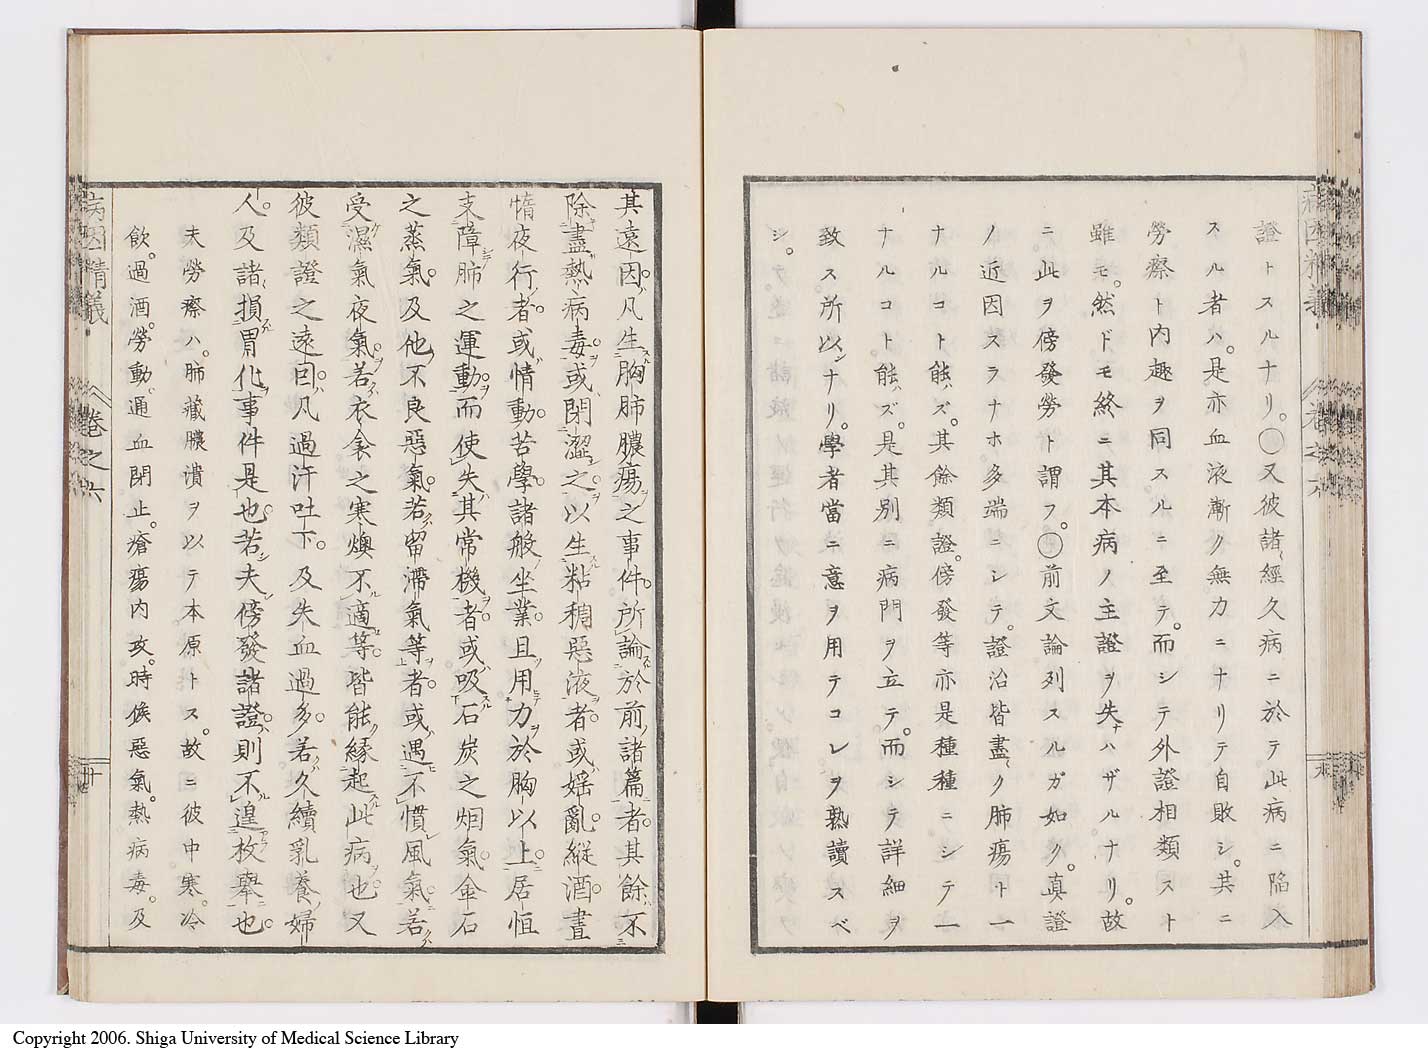 證トスルナリ。○又彼諸經久病ニ於テ此病ニ陷入
スル者ハ。是亦血液漸ク無力ニナリテ自敗シ。共ニ
勞瘵ト內趣ヲ同スルニ至テ。而シテ外證相類スト
雖モ。然ドモ終ニ其本病ノ主證ヲ失ハザルナリ。故
ニ。此ヲ傍發勞ト謂フ。○前文論列スルガ如ク。真證
ノ近因スラナホ多端ニシテ。證治皆盡ク肺瘍ト一
ナルコト能ハズ。其餘類證。傍發等亦是種種ニシテ一
ナルコト能ハズ。是其別ニ病門ヲ立テ。而シテ詳細ヲ
致ス所以ンナリ。學者當ニ意ヲ用テコレヲ熟讀スベ
シ。
其遠因。凡生胸肺膿瘍之事件。所論於前諸篇者。其餘不
除盡熱病毒。或閉澀之。以生粘稠惡液者。或婬亂。縱酒。晝
惰夜行者。或情動。苦學。諸般坐業。且用力於胸以上。居恒
支障肺之運動。而使失其常機者。或吸石炭之烟氣。金石
之蒸氣。及他不良惡氣。若留滯氣等者。或遇不慣風氣。若
受濕氣夜氣。若衣衾之寒燠不適等。皆能緣起此病也。又
彼類證之遠因。凡過汗吐下。及失血過多。若久續乳養婦
人。及諸損胃化事件是也。若夫傍發諸證。則不遑枚舉也。
夫勞瘵ハ。肺藏膿潰ヲ以テ本原トス。故ニ彼中寒。冷
飲。過酒。勞動。通血閉止。瘡瘍內攻。時候惡氣。熱病毒。及
病因精義 卷之六
Copyright 2006. Shiga University of Medical Science Library